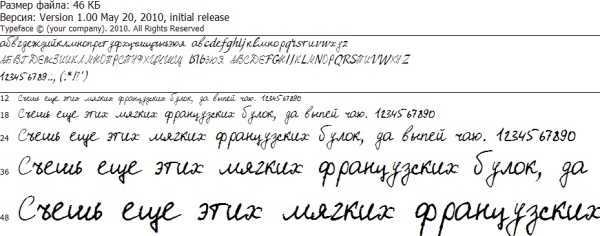 Размер файла: 46 КБ
Версия: Version 1.00 May 20, 2010, initial release
Typeface © (your company). 2010. All Rights Reserved
абвгдежзийклмнопрстуфхцчшщъыьэюя abcdefghijklmnopqrstuvwxyz
АБВГДЕЖЗИЙКЛМНОПРСТУФХЦЧШЩ ЪЫЬЭЮЯ ABCDEFGHIJKLMNOPQRSTUVWXYZ
1234567890.,, (:*!?')
12 Съешь еще этих мягких французских булок, да выпей чаю. 1234567890
18 Съешь еще этих мягких французских булок, да выпей чаю. 1234567890
24 Съешь еще этих мягких французских булок, да выпей чаю. 1234567890
36 Съешь еще этих мягких французских булок, да
48 Съешь еще этих мягких французских